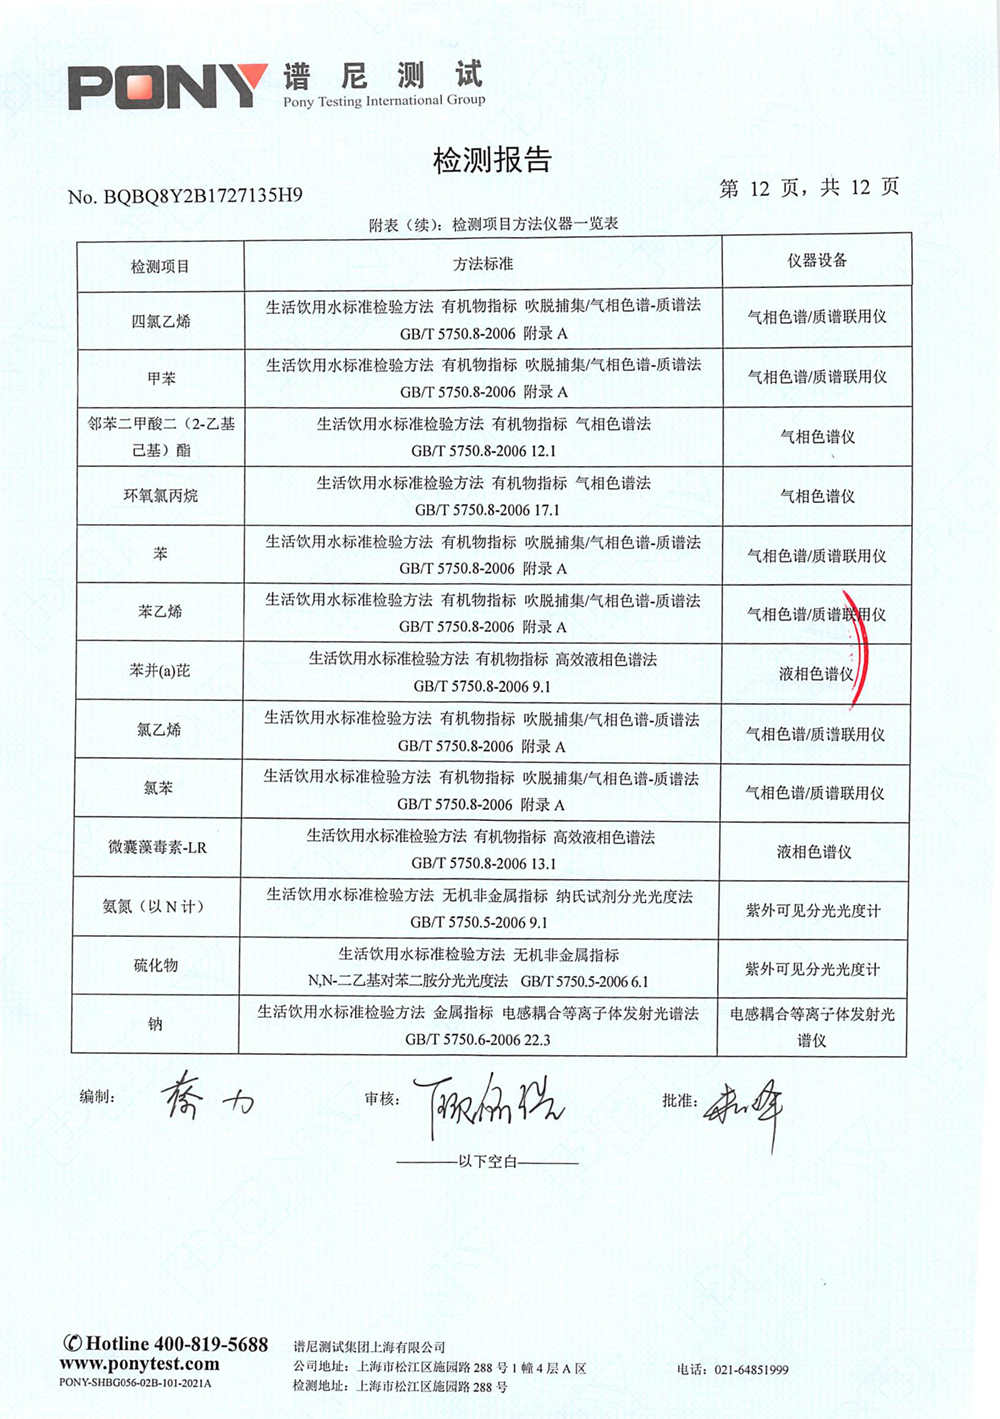 PONY 谱尼测试
Pony Testing International Group
检测报告
No. BQBQ8Y2B1727135H9
第 12 页，共 12 页
附表（续）：检测项目方法仪器一览表
检测项目 方法标准 仪器设备
四氯乙烯 生活饮用水标准检验方法 有机物指标 吹脱捕集/气相色谱-质谱法 气相色谱/质谱联用仪
GB/T 5750.8-2006 附录 A
甲苯 生活饮用水标准检验方法 有机物指标 吹脱捕集/气相色谱-质谱法 气相色谱/质谱联用仪
GB/T 5750.8-2006 附录 A
邻苯二甲酸二（2-乙基 生活饮用水标准检验方法 有机物指标 气相色谱法 气相色谱仪
己基）酯 GB/T 5750.8-2006 12.1
环氧氯丙烷 生活饮用水标准检验方法 有机物指标 气相色谱法 气相色谱仪
GB/T 5750.8-2006 17.1
苯 生活饮用水标准检验方法 有机物指标 吹脱捕集/气相色谱-质谱法 气相色谱/质谱联用仪
GB/T 5750.8-2006 附录 A
苯乙烯 生活饮用水标准检验方法 有机物指标 吹脱捕集/气相色谱-质谱法 气相色谱/质谱联用仪
GB/T 5750.8-2006 附录 A
苯并(a)芘 生活饮用水标准检验方法 有机物指标 高效液相色谱法 液相色谱仪
GB/T 5750.8-2006 9.1
氯乙烯 生活饮用水标准检验方法 有机物指标 吹脱捕集/气相色谱-质谱法 气相色谱/质谱联用仪
GB/T 5750.8-2006 附录 A
氯苯 生活饮用水标准检验方法 有机物指标 吹脱捕集/气相色谱-质谱法 气相色谱/质谱联用仪
GB/T 5750.8-2006 附录 A
微囊藻毒素-LR 生活饮用水标准检验方法 有机物指标 高效液相色谱法 液相色谱仪
GB/T 5750.8-2006 13.1
氨氮（以 N 计） 生活饮用水标准检验方法 无机非金属指标 纳氏试剂分光光度法 紫外可见分光光度计
GB/T 5750.5-2006 9.1
硫化物 生活饮用水标准检验方法 无机非金属指标 紫外可见分光光度计
N,N-二乙基对苯二胺分光光度法 GB/T 5750.5-2006 6.1
钠 生活饮用水标准检验方法 金属指标 电感耦合等离子体发射光谱法 电感耦合等离子体发射光
GB/T 5750.6-2006 22.3 谱仪
编制： 审核： 批准：
以下空白
Hotline 400-819-5688
www.ponytest.com
PONY-SHBG056-02B-101-2021A
谱尼测试集团上海有限公司
公司地址：上海市松江区施园路 288 号 1 幢 4 层 A 区
检测地址：上海市松江区施园路 288 号
电话：021-64851999